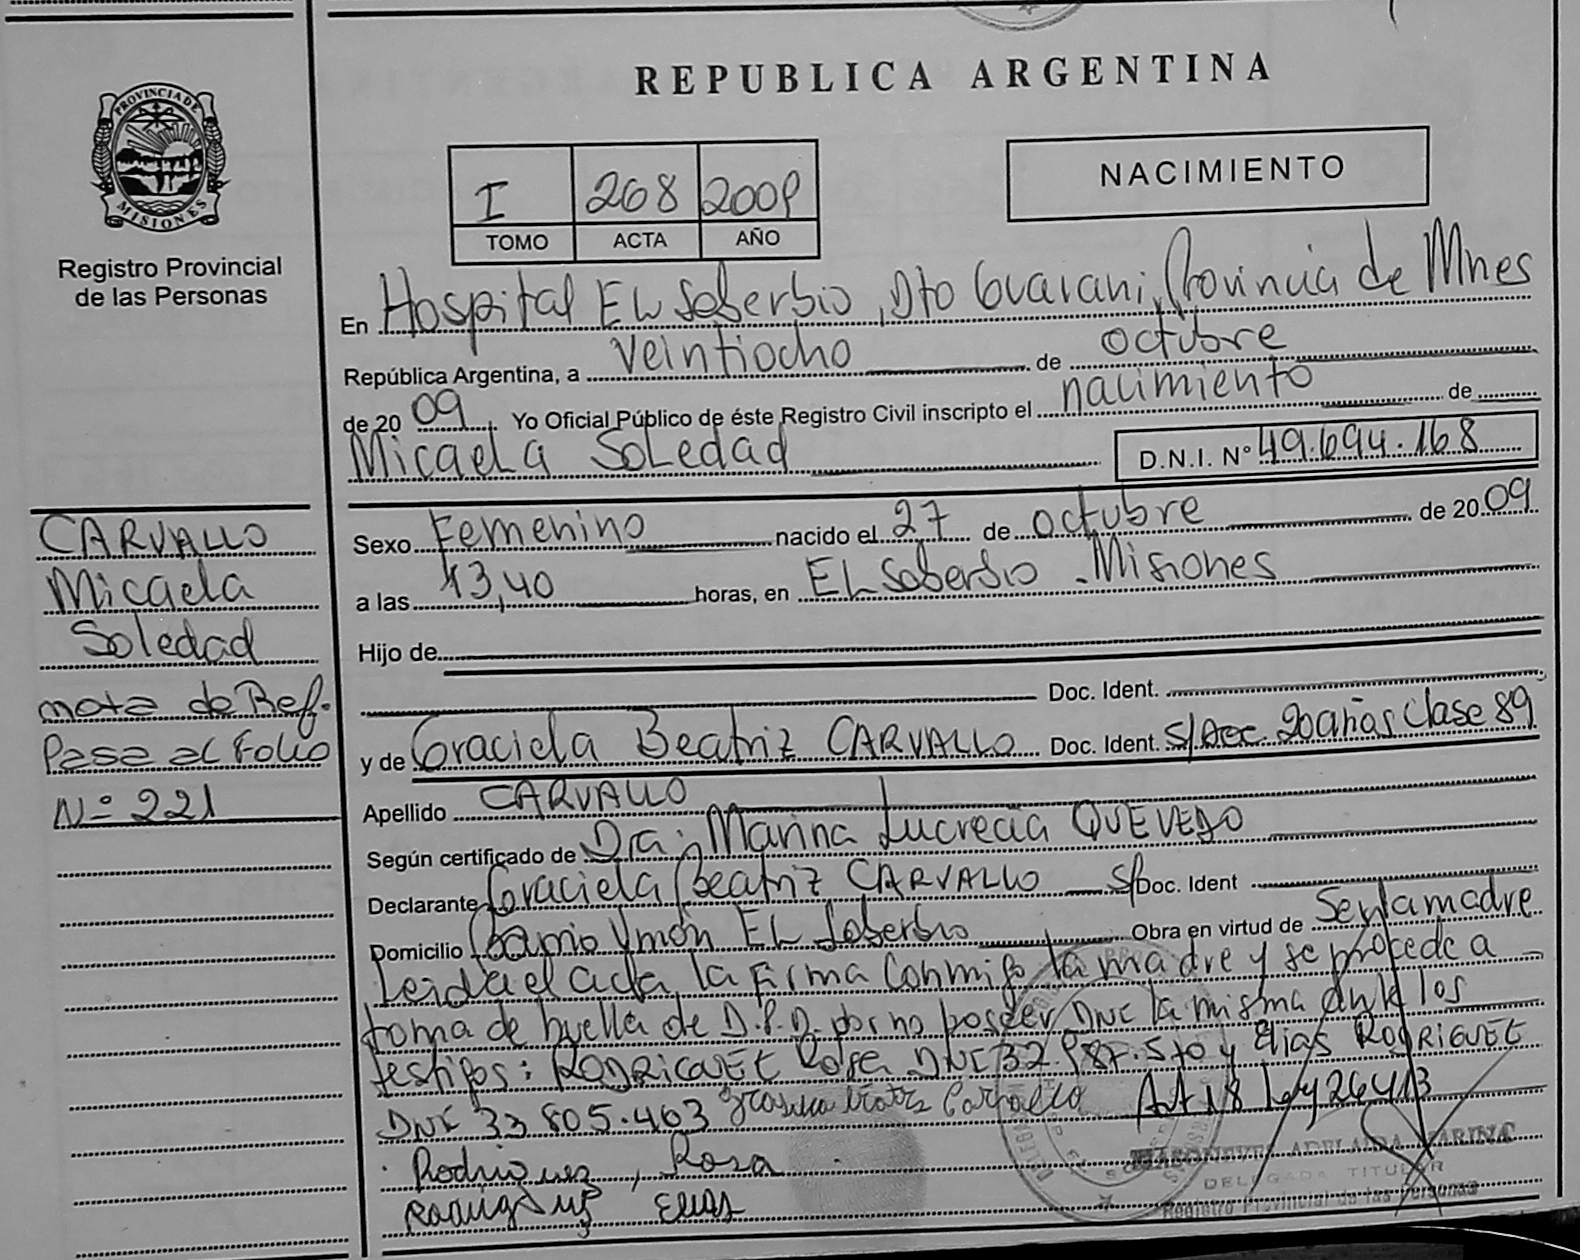 REPUBLICA ARGENTINA
PROVINCIA DE
MISIONES
Registro Provincial
de las Personas
I 268 2009
TOMO ACTA AÑO
NACIMIENTO
En Hospital EL Soberbio, Dto Guarani, Provincia de Mnes
República Argentina, a veintiocho de octubre
de 2009. Yo Oficial Público de éste Registro Civil inscripto el nacimiento de
Micaela Soledad D.N.I. Nº 49.694.168
CARVALLO
Micaela
Soledad
nota de Ref.
Pasa al Folio
Nº 221
Sexo Femenino nacido el 27 de octubre de 2009
a las 13,40 horas, en EL Soberbio - Misiones
Hijo de
Doc. Ident.
y de Graciela Beatriz CARVALLO Doc. Ident. S/Doc. 20 años Clase 89
Apellido CARVALLO
Según certificado de Dra. Marina Lucrecia QUEVEDO
Declarante Graciela Beatriz CARVALLO S/Doc. Ident
Domicilio Barrio Unión EL Soberbio Obra en virtud de Ser la madre
Leida el acta, la firma conmigo la madre y se procede a
toma de huella de D.P.D. por no poseer DNI la misma ante los
testigos: RODRIGUEZ Rosa DNI 32.987.570 y Elias RODRIGUEZ
DNI 33.805.463 Carvallo Art 18 Ley 26413
Rodriguez, Rosa
Elias
ADELAIDA MARINA
DELEGADA TITULAR
Registro Provincial de las Personas